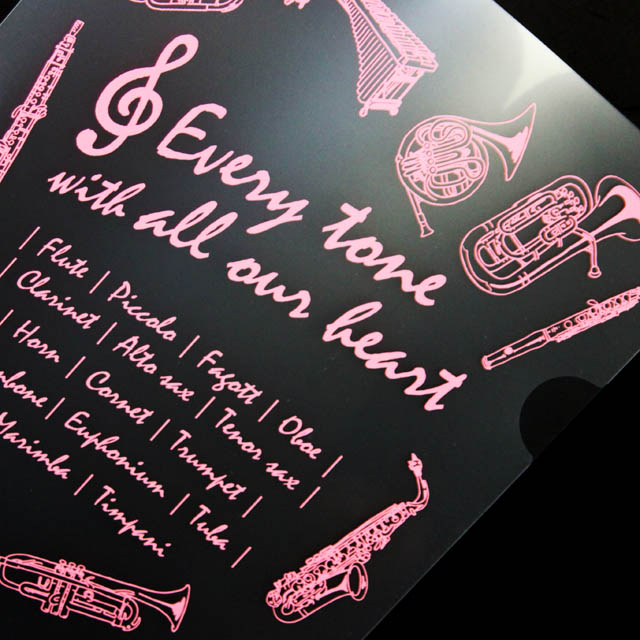 Every tone
with all our heart
| Flute | Piccolo | Fagott | Oboe |
| Clarinet | Alto sax | Tenor sax |
| Horn | Cornet | Trumpet |
| Euphonium | Tuba |
Marimba | Timpani